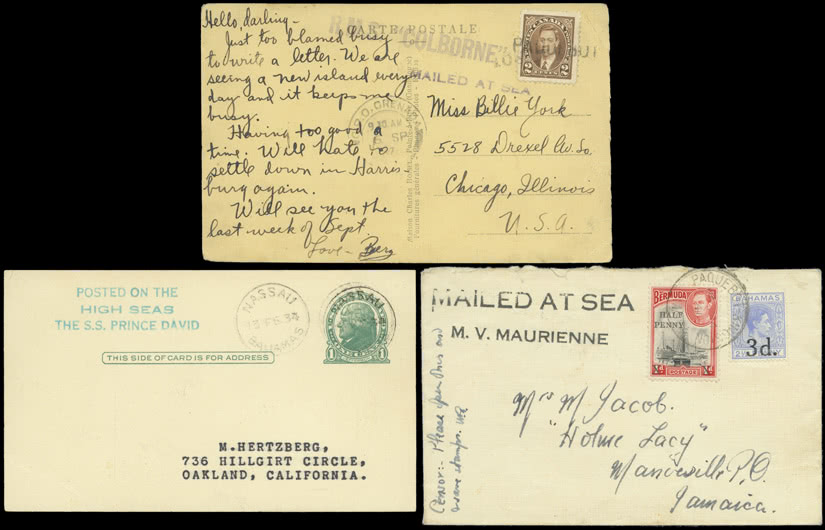 Hello, darling-
Just too blamed busy
to write a letter. We are
seeing a new island every
day and it keeps me
busy.
Having too good a
time. Will hate to
settle down in Harris-
burg again.
Will see you the
last week of Sept.
Love-
CARTE POSTALE
R.M.S. "COLBORNE"
MAILED AT SEA
CANADA
2 CENTS 2
G.P.O. GRENADA
SP
Miss Billie York
5528 Drexel Av. So.
Chicago, Illinois
U.S.A.
POSTED ON THE
HIGH SEAS
THE S.S. PRINCE DAVID
NASSAU
FE 34
BAHAMAS
NASSAU
1 1
THIS SIDE OF CARD IS FOR ADDRESS
M.HERTZBERG,
736 HILLGIRT CIRCLE,
OAKLAND, CALIFORNIA.
MAILED AT SEA
M. V. MAURIENNE
BERMUDA
HALF
PENNY
POSTAGE
PAQUEBOT
BAHAMAS
3d.
Censor:- Please open this end
save stamps.
Mrs M. Jacob.
"Holme Lacy"
Mandeville P.O.
Jamaica.